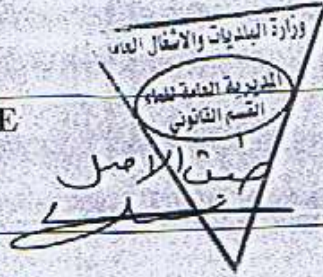 وزارة البلديات والاشغال العامة
المديرية العامة للماء
القسم القانوني
E
طبق الاصل